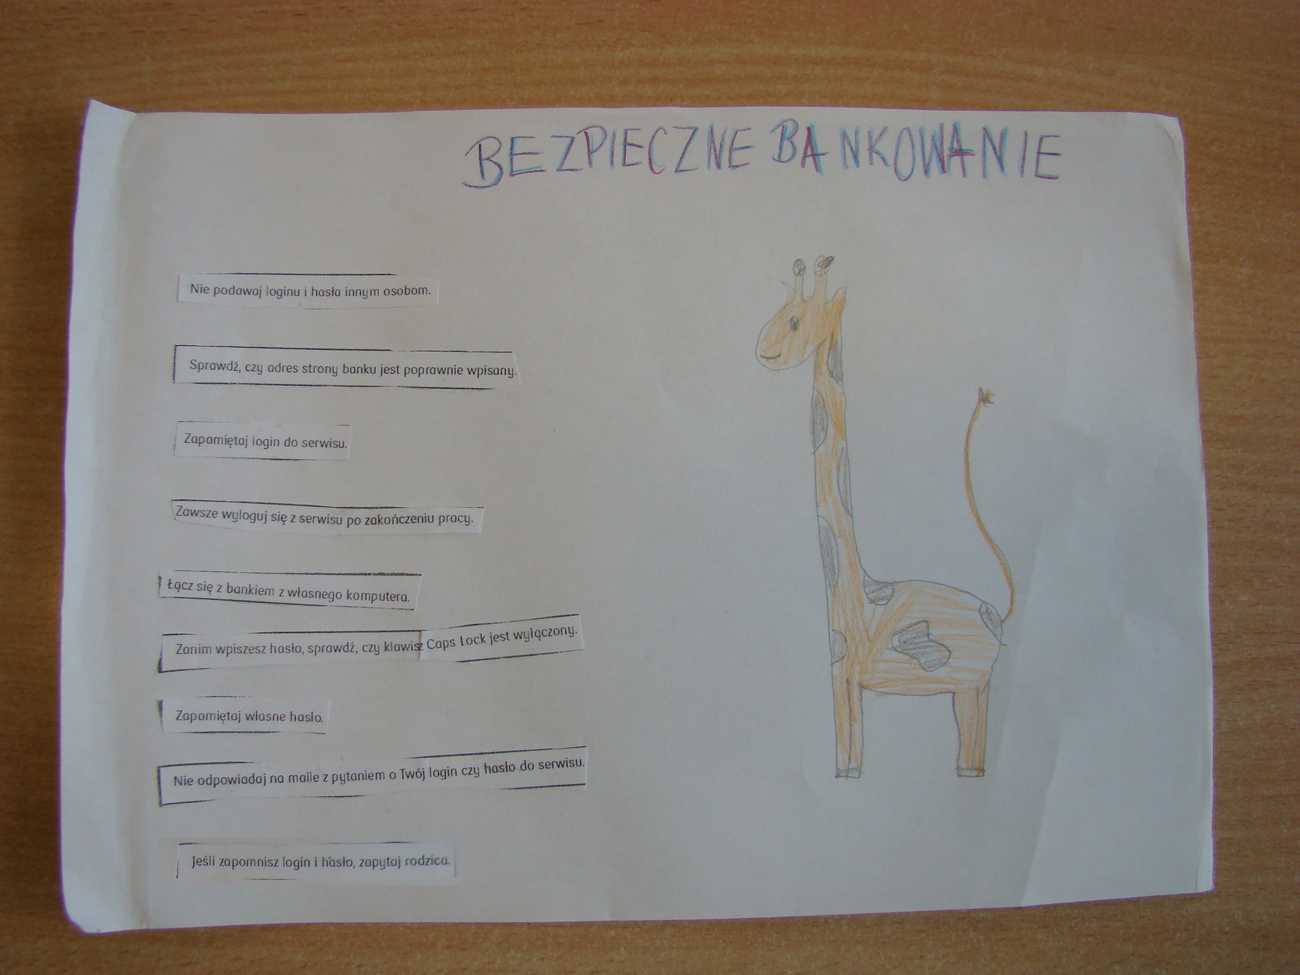 BEZPIECZNE BANKOWANIE
Nie podawaj loginu i hasła innym osobom.
Sprawdź, czy adres strony banku jest poprawnie wpisany.
Zapamiętaj login do serwisu.
Zawsze wyloguj się z serwisu po zakończeniu pracy.
Łącz się z bankiem z własnego komputera.
Zanim wpiszesz hasło, sprawdź, czy klawisz Caps Lock jest wyłączony.
Zapamiętaj własne hasło.
Nie odpowiadaj na maile z pytaniem o Twój login czy hasło do serwisu.
Jeśli zapomnisz login i hasło, zapytaj rodzica.